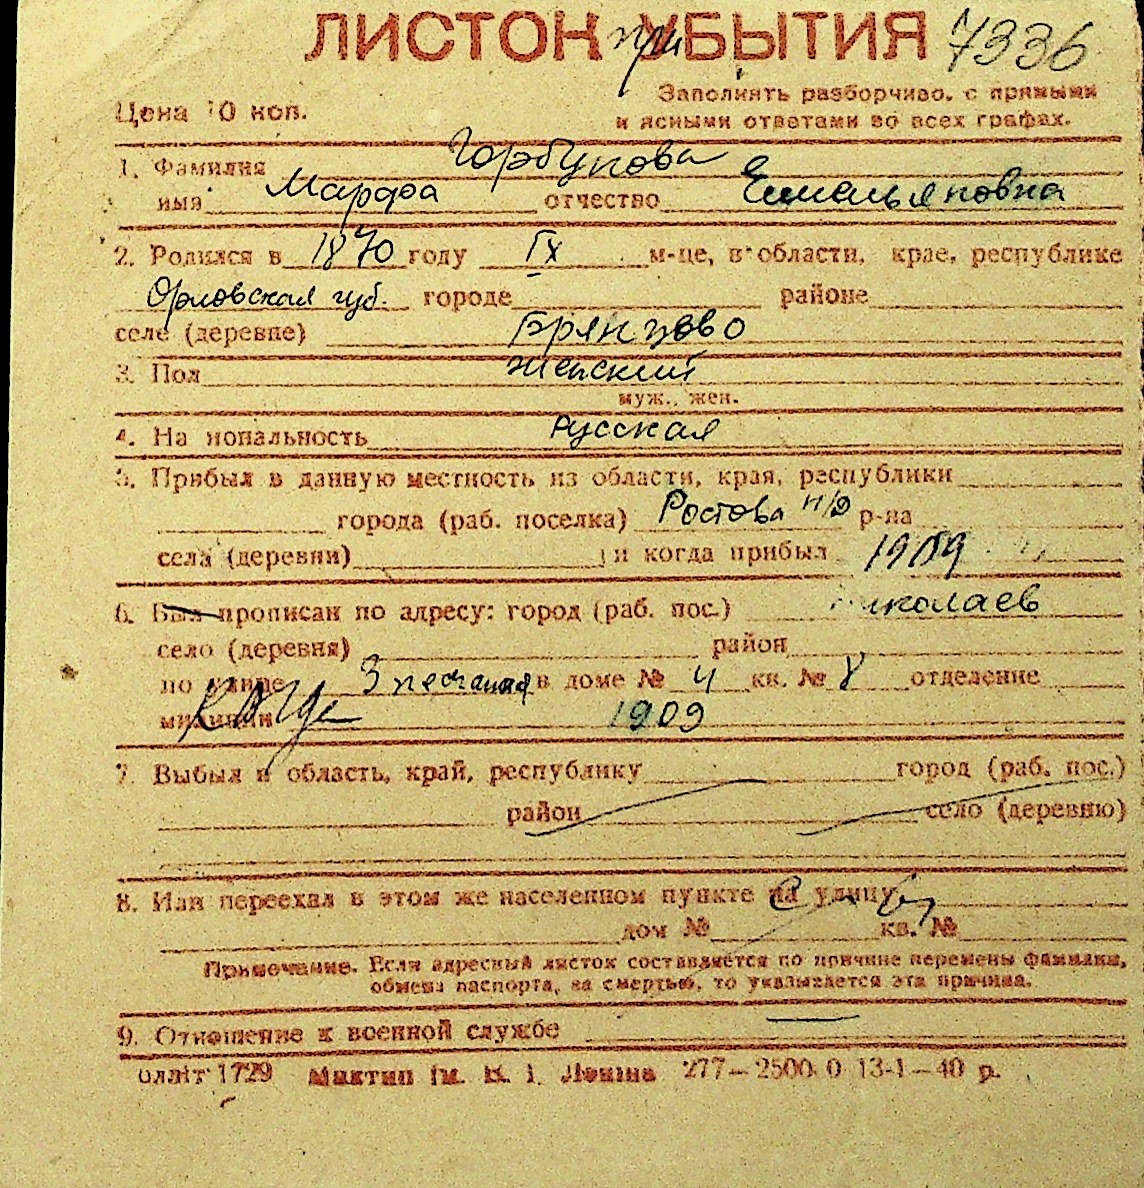 ЛИСТОК при УБЫТИЯ 7336
Цена 10 коп.
Заполнять разборчиво, с прямыми
и ясными ответами во всех графах.
1. Фамилия Горбунова
имя Марфа отчество Емельяновна
2. Родился в 1870 году IX м-це, в области, крае, республике
Орловская губ. городе районе
селе (деревне) Брянцево
3. Пол женский
муж., жен.
4. На иональность Русская
5. Прибыл в данную местность из области, края, республики
города (раб. поселка) Ростова н/Д р-на
села (деревни) и когда прибыл 1909
6. Был прописан по адресу: город (раб. пос.) Николаев
село (деревня) район
по улице 3 песчаная в доме № 4 кв. № 8 отделение
милиции когда 1909
7. Выбыл в область, край, республику город (раб. пос.)
район село (деревню)
8. Или переехал в этом же населенном пункте на улицу
дом № кв. №
Примечание. Если адресный листок составляется по причине перемены фамилии,
обмена паспорта, за смертью, то указывается эта причина.
9. Отношение к военной службе
оллiт 1729 Миктип iм. В. I. Ленiна 277—2500 0 13-1—40 р.